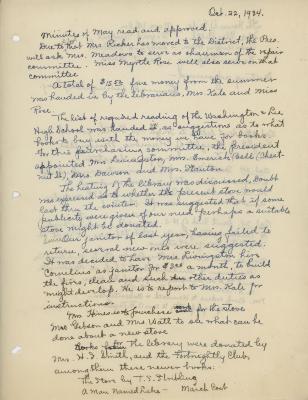 Oct. 22, 1934.
Minutes of May read and approved.
Due to that Mrs. Ricker has moved to the District, the Pres.
will ask Mrs. Meadows to serve as chairman of the repair
committee. Miss Myrtle Rose will also serve on that
committee.
A total of $15.55 fine money from the summer
was handed in by the librarians, Mrs. Kale and Miss
Rose.
The list of required reading of the Washington & Lee
High School was handed in as suggestions as to what
books to buy with the money we have for books
For this purchasing committee, the president
appointed Mrs. Livingston, Mrs. Emerich, Bell (Chest-
nut St), Mrs. Dawson and Mrs. Stanton.
The heating of the library was discussed. Doubt
was expressed as to whether the present stove would
last out the winter. It was suggested that if some
publicity were given of our need perhaps a suitable
stove might be donated.
Our janitor of last year, having failed to
return, several new ones were suggested.
It was decided to have Mrs. Livingston hire
Cornelius as janitor for $3.00 a month, to build
the fires, clean and such other duties as
might develop. He is to report to Mrs. Kale for
instructions.
Mrs. Hines to purchase for the stove
Mrs. Gibson and Mrs. Watt to see what can be
done about a new stove
Books for the library were donated by
Mrs. H. F. and the Fortnightly Club,
among them these newer books:
The Store by T. S. Stribling
A Man Named Luke - March Cost